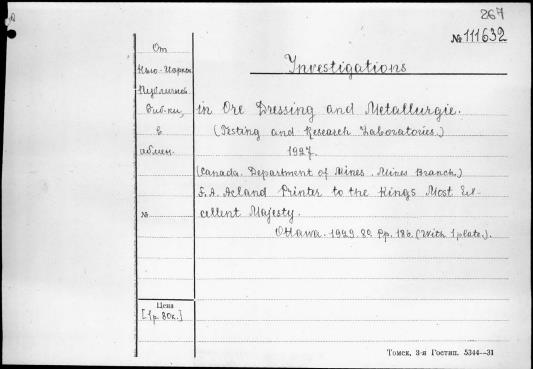 267
№111632
От
Нью-Иоркск.
Публичной
биб-ки,
в
обмен.
Investigations
in Ore Dressing and Metallurgie.
(Testing and Research Laboratories.)
1927.
(Canada. Department of Mines. Mines Branch.)
F.A. Acland Printer to the Kings Most Ex-
cellent Majesty.
№
Ottawa. 1929. 8o. Pp. 186. (With 1 plate.).
Цена
[1р. 80к.]
Томск, 3-я Гостип. 5344—31